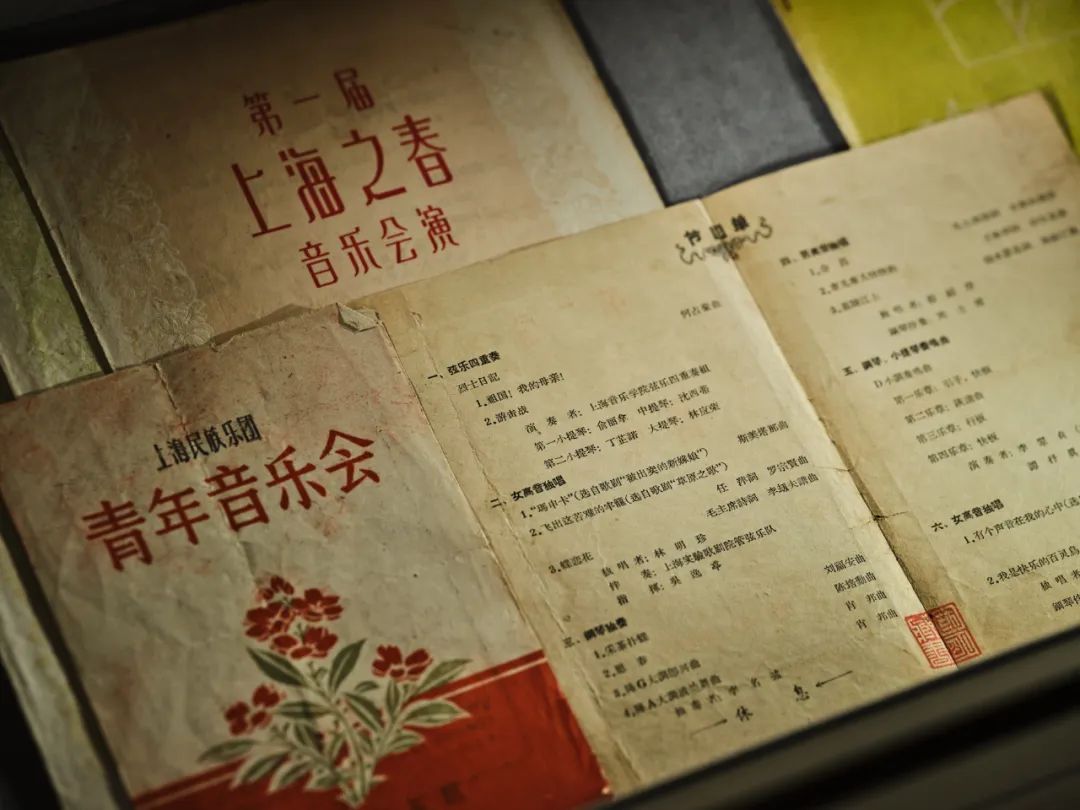 第一届
上海之春
音乐会演
上海民族乐团
青年音乐会
节目单
何占豪曲
一、弦乐四重奏
烈士日記
1.祖国！我的母亲！
2.游击战
演奏者：上海音乐学院弦乐四重奏組
第一小提琴：俞丽拿 中提琴：沈西蒂
第二小提琴：丁芷諾 大提琴：林应荣
二、女高音独唱
斯美塔那曲
1.“瑪申卡”(选自歌剧“被出卖的新嫁娘”)
2.飞出这苦难的牢籠(选自歌剧“草原之歌”)
任萍詞 罗宗賢曲
毛主席詩詞 李劫夫譜曲
3.蝶恋花
独唱者：林明珍
伴奏：上海实驗歌剧院管弦乐队
指揮：
三、鋼琴独奏
1.采茶扑蝶
刘福安曲
2.
陈培勳曲
3.降G大調
肖邦曲
4.降A大調波兰舞曲
肖邦曲
独奏者：李名强
休息
四、男高音独唱
1.
2.
3.
五、鋼琴、小提琴奏鳴曲
D小調奏鳴曲
第一乐章：引子，快板
第二乐章：
第三乐章：行板
第四乐章：快板
演奏者：
六、女高音独唱
1.有个声音在我的心中(选
2.我是快乐的百灵鳥
独唱者
鋼琴伴